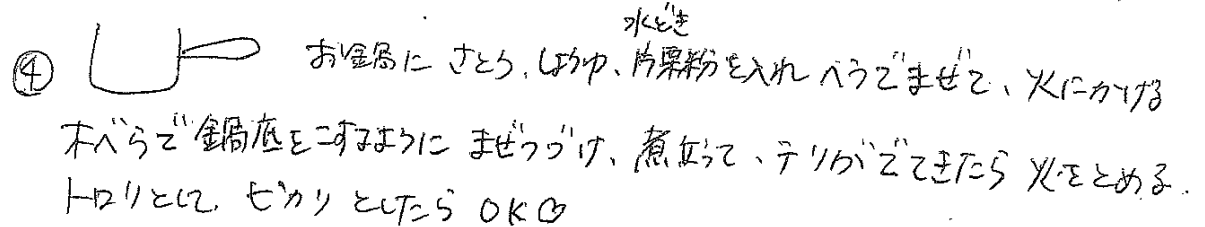 ④ お鍋に さとう、しょうゆ、水どき片栗粉を入れ へらでまぜて、火にかける
木べらで鍋底をこするように まぜつづけ、煮立って、テリがでてきたら 火をとめる.
トロリとして、ピカリ としたら OK♡